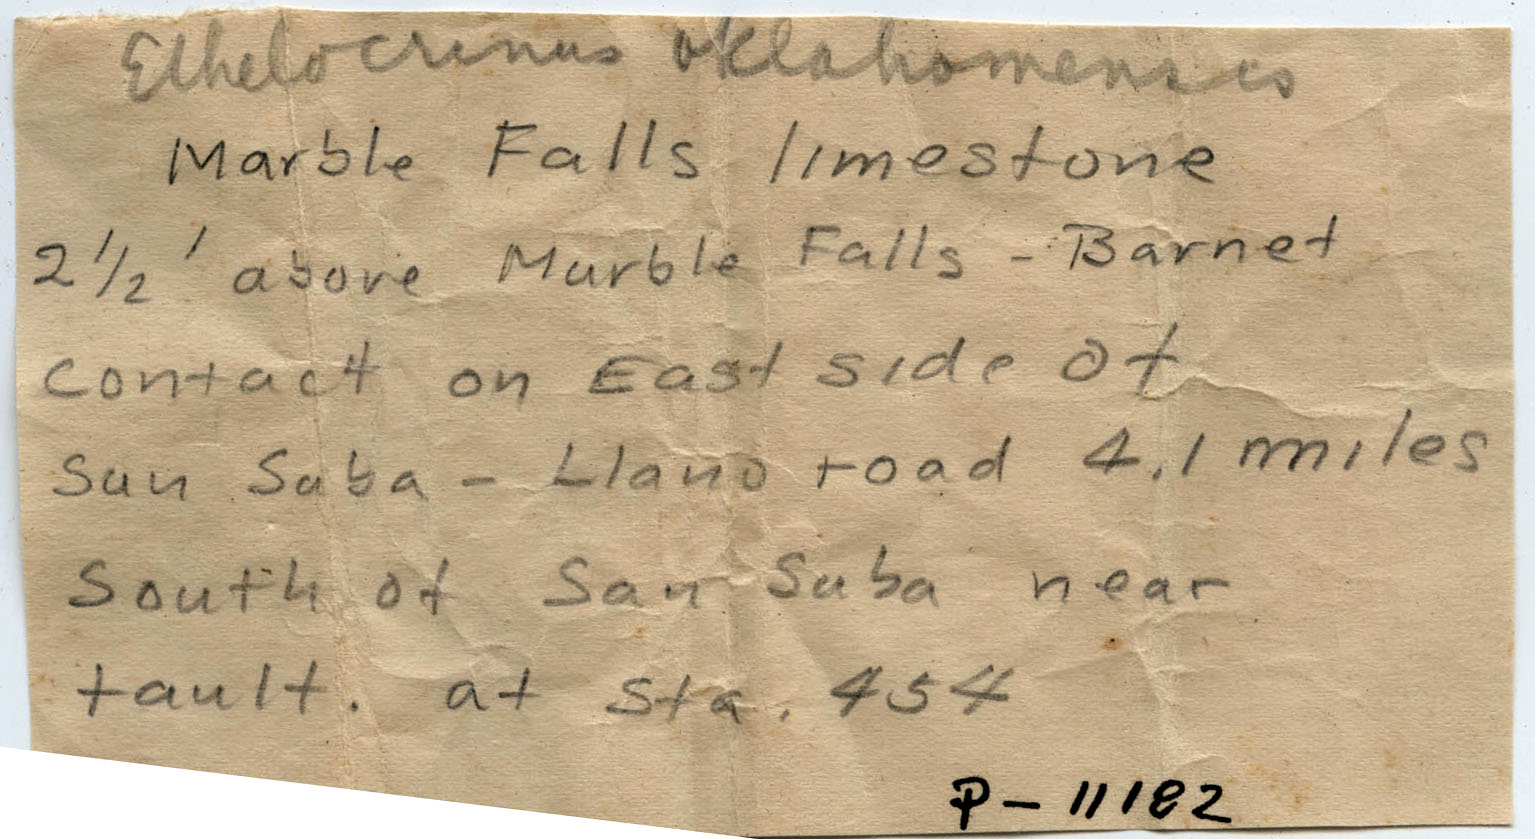 Ethelocrinus oklahomensis
Marble Falls limestone
2 1/2 ' above Marble Falls - Barnet
contact on East side of
San Saba - Llano road 4.1 miles
South of San Saba near
fault. at sta. 454
P - 11182